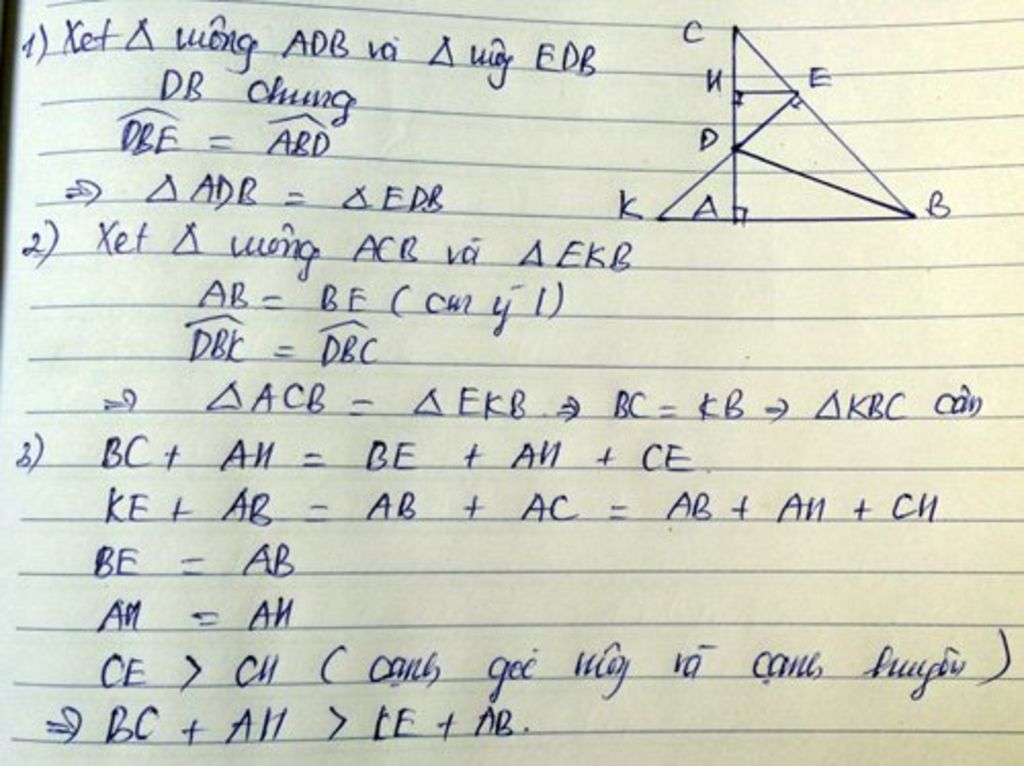 1) Xet Δ vuông ADB và Δ vuôg EDB
DB chung
DBE = ABD
=> Δ ADB = Δ EDB
2) Xet Δ vuông ACB và Δ EKB
AB = BE ( cm ý 1)
DBK = DBC
=> Δ ACB = Δ EKB => BC = KB => Δ KBC cân
3) BC + AH = BE + AH + CE
KE + AB = AB + AC = AB + AH + CH
BE = AB
AH = AH
CE > CH ( cạnh góc vuôg và cạnh huyền )
=> BC + AH > KE + AB.
C
H E
D
K A B